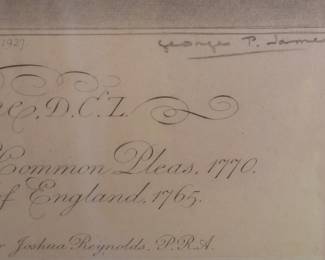 1927
George P. James
D.C.L.
Common Pleas, 1770.
of England, 1765.
Joshua Reynolds, P.R.A.